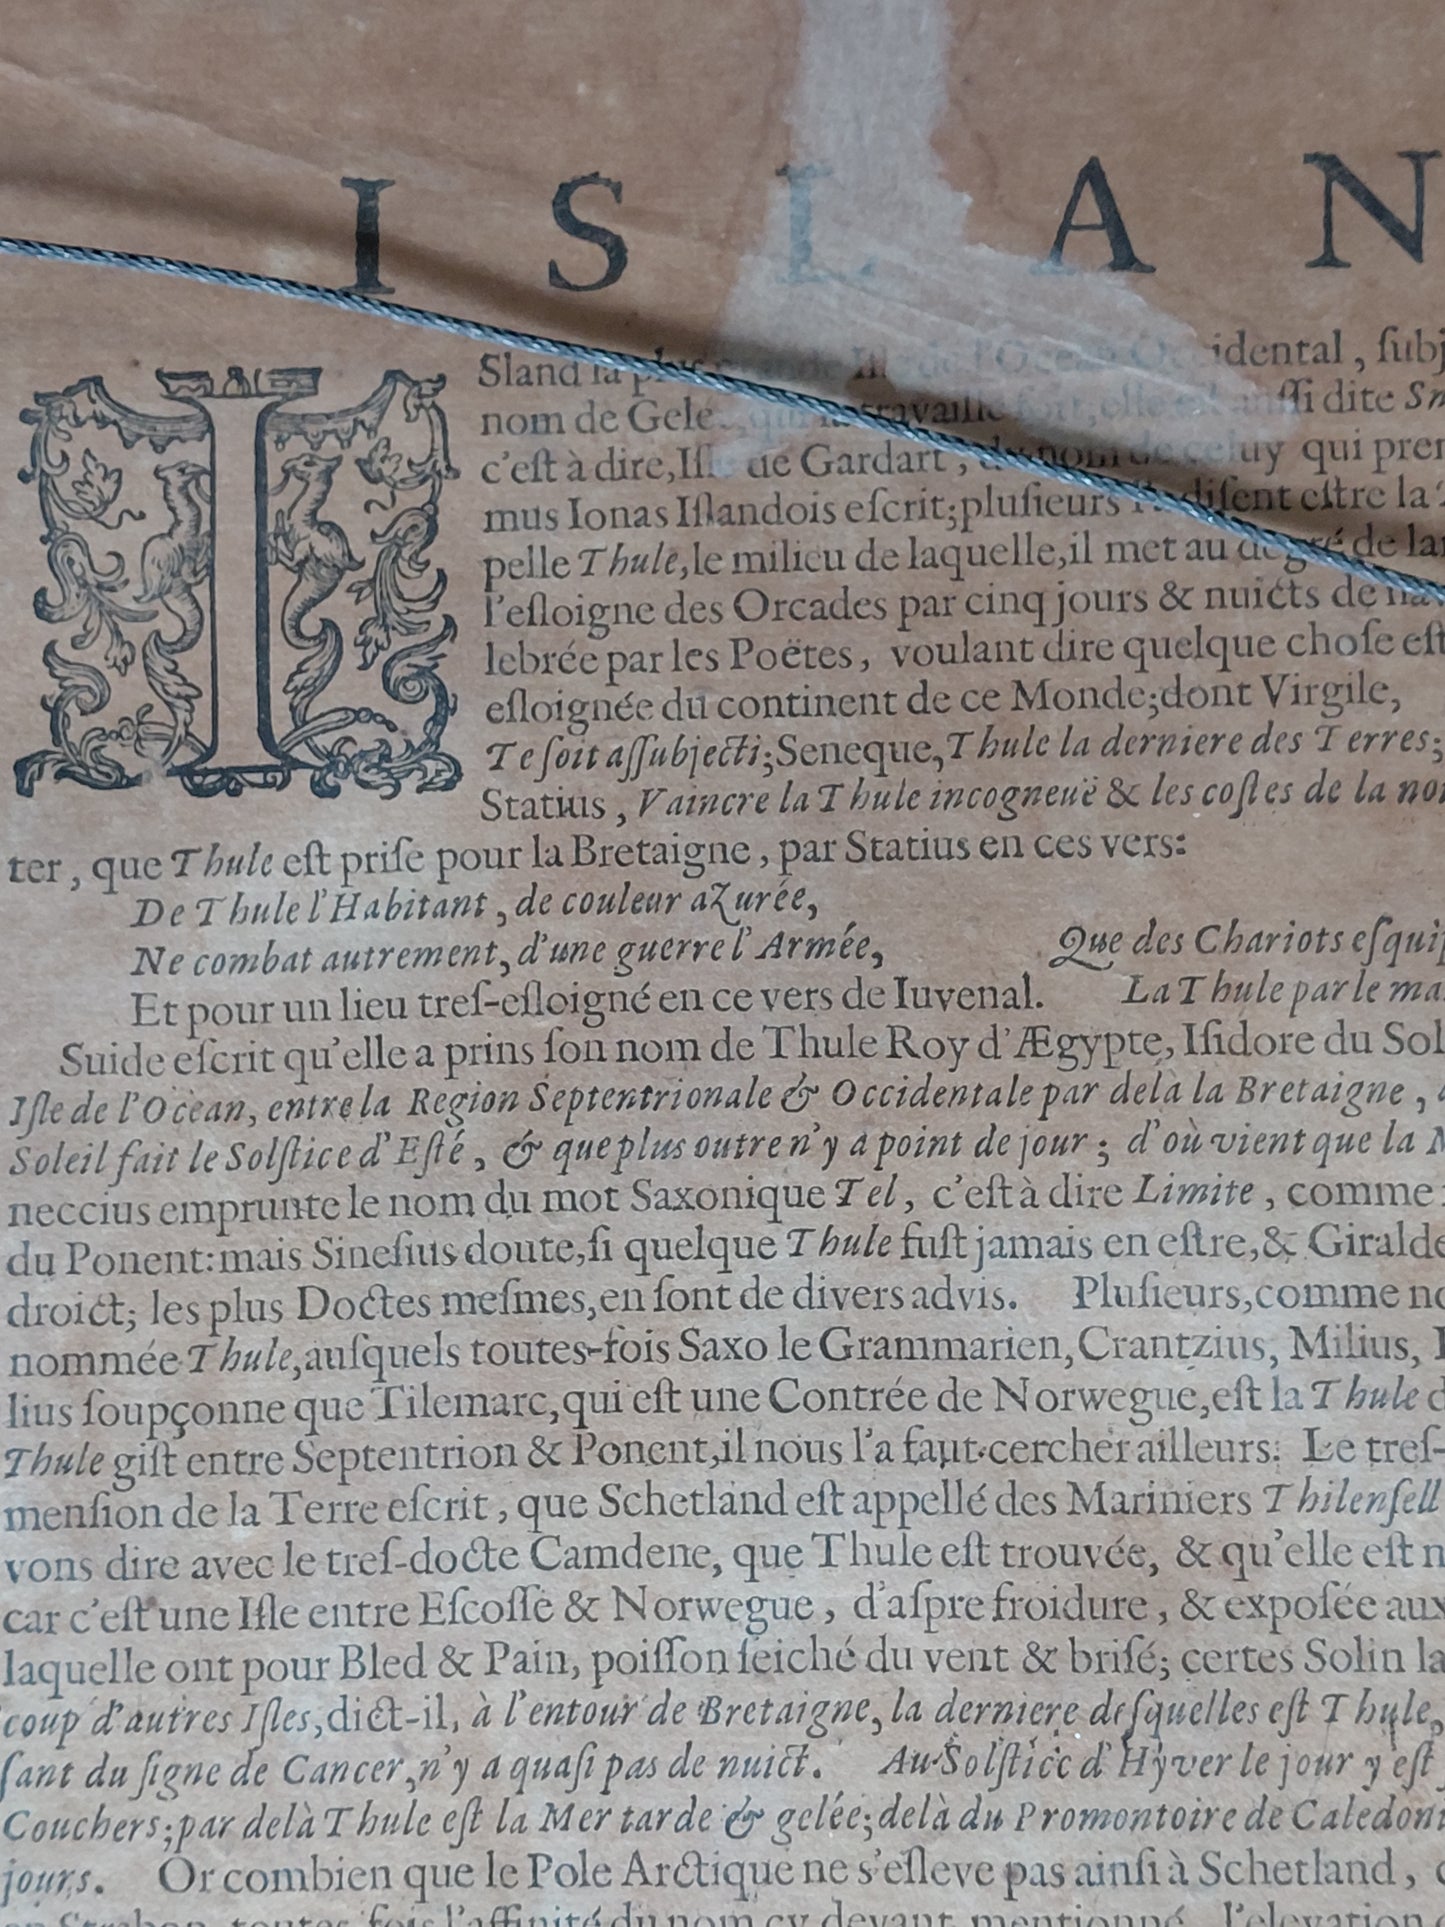 I S L A N
ISland la plus grande Isle de l'Ocean Occidental, ſubj
nom de Gelée, qui la travaille fort, elle est auſſi dite Sn
c'eſt à dire, Iſle de Gardart, du nom de celuy qui pren
mus Ionas Iſlandois eſcrit; pluſieurs diſent eſtre la
pelle Thule, le milieu de laquelle, il met au degré de la
l'eſloigne des Orcades par cinq jours & nuicts de nav
lebrée par les Poëtes, voulant dire quelque choſe eſt
eſloignée du continent de ce Monde; dont Virgile,
Te ſoit aſſubjecti; Seneque, Thule la derniere des Terres;
Statius, Vaincre la Thule incogneuë & les coſtes de la no
ter, que Thule eſt priſe pour la Bretaigne, par Statius en ces vers:
De Thule l'Habitant, de couleur azurée,
Ne combat autrement, d'une guerre l'Armée, Que des Chariots eſquip
Et pour un lieu treſ-eſloigné en ce vers de Iuvenal. La Thule par le ma
Suide eſcrit qu'elle a prins ſon nom de Thule Roy d'Ægypte, Iſidore du Sol
Iſle de l'Ocean, entre la Region Septentrionale & Occidentale par dela la Bretaigne,
Soleil fait le Solſtice d'Eſté, & que plus outre n'y a point de jour; d'où vient que la
neccius emprunte le nom du mot Saxonique Tel, c'eſt à dire Limite, comme
du Ponent: mais Sineſius doute, ſi quelque Thule fuſt jamais en eſtre, & Giralde
droict; les plus Doctes meſmes, en ſont de divers advis. Pluſieurs, comme no
nommée Thule, auſquels toutes-fois Saxo le Grammarien, Crantzius, Milius,
lius ſoupçonne que Tilemarc, qui eſt une Contrée de Norwegue, eſt la Thule d
Thule giſt entre Septentrion & Ponent, il nous l'a faut cercher ailleurs. Le treſ-
menſion de la Terre eſcrit, que Schetland eſt appellé des Mariniers Thilenſell
vons dire avec le treſ-docte Camdene, que Thule eſt trouvée, & qu'elle eſt n
car c'eſt une Iſle entre Eſcoſſe & Norwegue, d'aſpre froidure, & expoſée aux
laquelle ont pour Bled & Pain, poiſſon ſeiché du vent & briſé; certes Solin la
coup d'autres Iſles, dict-il, à l'entour de Bretaigne, la derniere deſquelles eſt Thule,
ſant du ſigne de Cancer, n'y a quaſi pas de nuict. Au Solſtice d'Hyver le jour y eſt
Couchers; par delà Thule eſt la Mer tarde & gelée; delà du Promontoire de Caledoni
jours. Or combien que le Pole Arctique ne s'eſleve pas ainſi à Schetland,
en Strabon, toutes fois l'affinité du nom cy devant mentionné, l'elevation